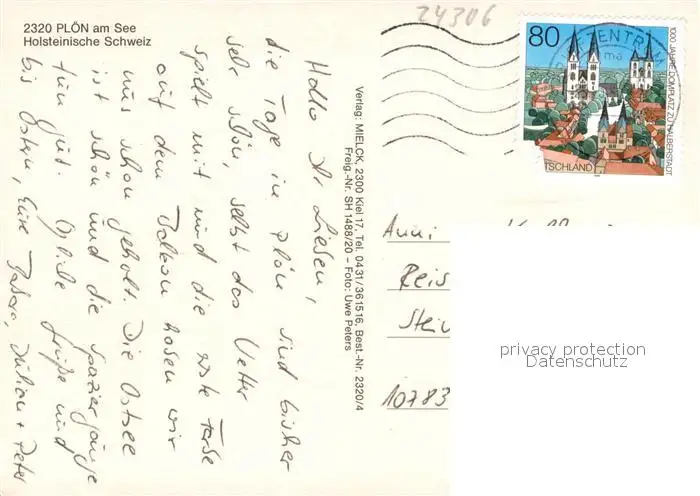 2320 PLÖN am See
Holsteinische Schweiz
24306
80
1000 JAHRE DOMPLATZ ZU HALBERSTADT
TSCHLAND
Hallo Ihr Lieben,
die Tage in Plön sind bisher
sehr schön, selbst das Wetter
spielt mit und die erste Tasse
auf dem Balkon haben wir
uns schon geholt. Die Ostsee
ist schön und die Spaziergänge
tun gut. Liebe Grüße und
bis Ostern, Eure Julian + Peter
Verlag: MIELCK, 2300 Kiel 17, Tel. 0431/361516, Best.-Nr. 2320/4
Freig.-Nr. SH 1488/20 – Foto: Uwe Peters
Anni
Reis
Stei
10783
privacy protection
Datenschutz